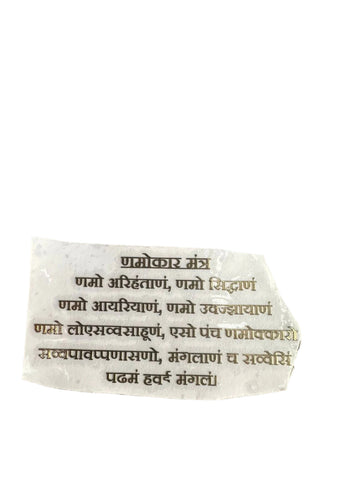 णमोकार मंत्र
णमो अरिहंताणं, णमो सिद्धाणं
णमो आयरियाणं, णमो उवज्झायाणं
णमो लोएसव्वसाहूणं, एसो पंच णमोक्कारो
सव्वपावप्पणासणो, मंगलाणं च सव्वेसिं
पढमं हवई मंगलं।